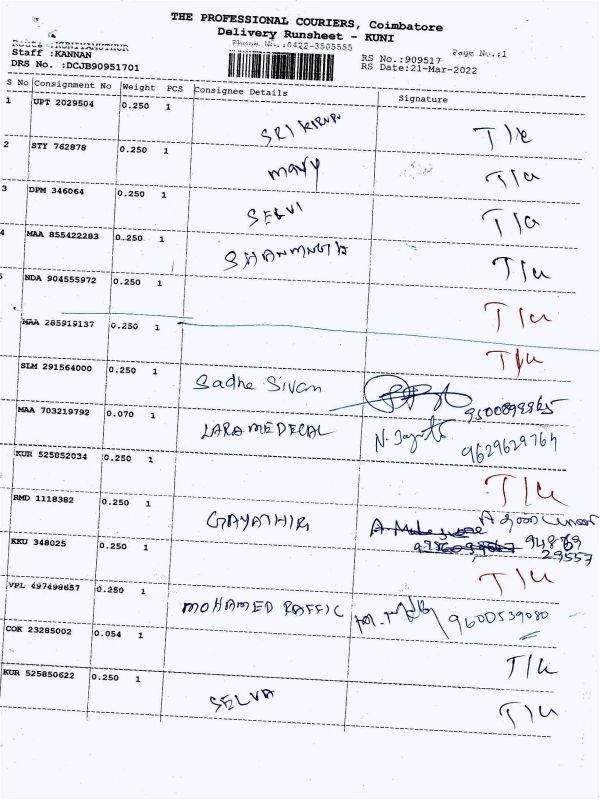 THE PROFESSIONAL COURIERS, Coimbatore
Delivery Runsheet - KUNI
Route :KUNIYAMUTHUR Phone No.:0422-3505555 Page No.:1
Staff :KANNAN RS No.:909517
DRS No. :DCJB90951701 RS Date:21-Mar-2022
S No Consignment No Weight PCS Consignee Details Signature
1 UPT 2029504 0.250 1 SRI T/c
2 STY 762878 0.250 1 T/u
3 DPM 346064 0.250 1 SELVI T/u
4 MAA 855422283 0.250 1 T/u
5 NDA 904555972 0.250 1 T/u
MAA 285919137 0.250 1 T/u
SLM 291564000 0.250 1 Sadhe Sivan
MAA 703219792 0.070 1 LARA MEDECAL 9629629764
KUR 525852034 0.250 1 T/u
RMD 1118382 0.250 1 GAYATHIR
KKU 348025 0.250 1 94869 29557
T/u
VPL 497498657 0.250 1 MOHAMED RAFFIC 9600539080
COK 23285002 0.054 1 T/u
KUR 525850622 0.250 1 SELVA T/u